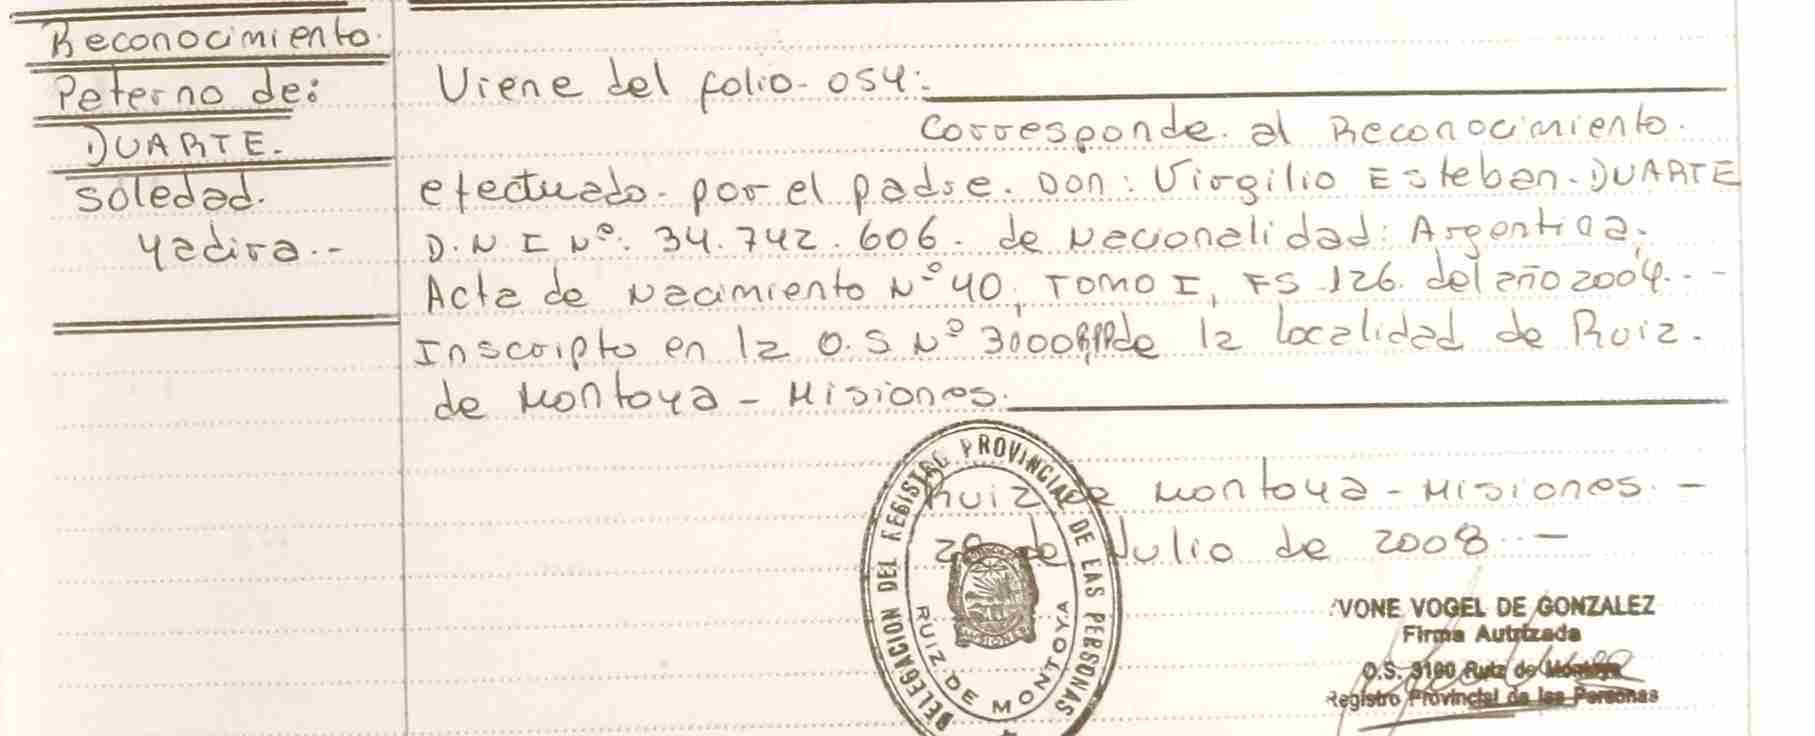 Reconocimiento.
Peterno de:
DUARTE.
Soledad.
Yadira.-
Viene del folio- 054:
Corresponde. al Reconocimiento.
efectuado- por el padre. Don: Virgilio Esteban-DUARTE
D.N.I Nº: 34.742.606- de Nacionalidad: Argentina.
Acta de Nacimiento Nº 40, TOMO I, FS 126. del año 2004.--
Inscripto en la O.S Nº de la localidad de Ruiz.
de Montoya - Misiones.
Ruiz de Montoya - Misiones. -
de Julio de 2008.-
DELEGACION DEL REGISTRO PROVINCIAL DE LAS PERSONAS
RUIZ DE MONTOYA
MISIONES
VONE VOGEL DE GONZALEZ
Firma Autrizada
O.S. 3100 Ruiz de Montoya
Registro Provincial de las Personas